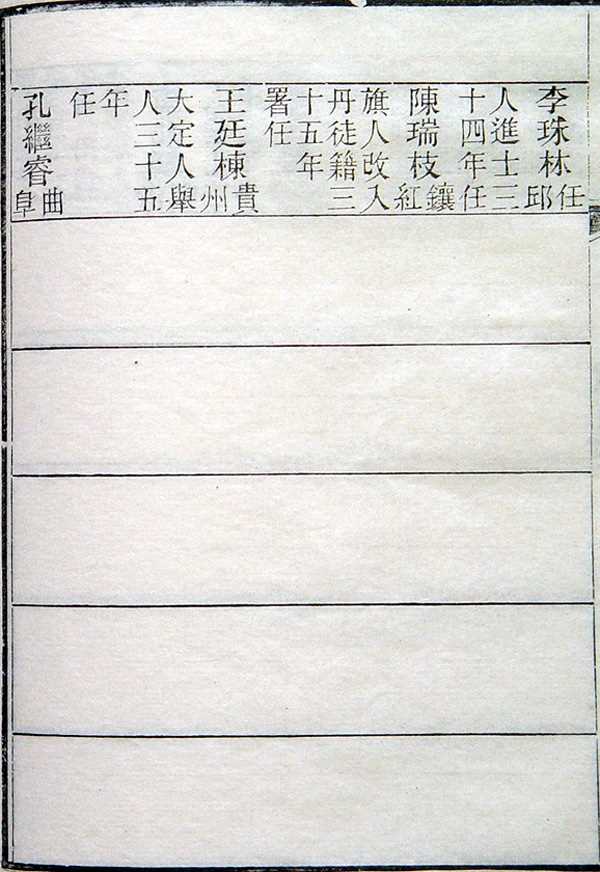 李珠林任邱
人進士三
十四年任
陳瑞枝鑲紅
旗人改入
丹徒籍三
十五年
署任
王廷棟貴州
大定人舉
人三十五
年
任
孔繼睿曲阜